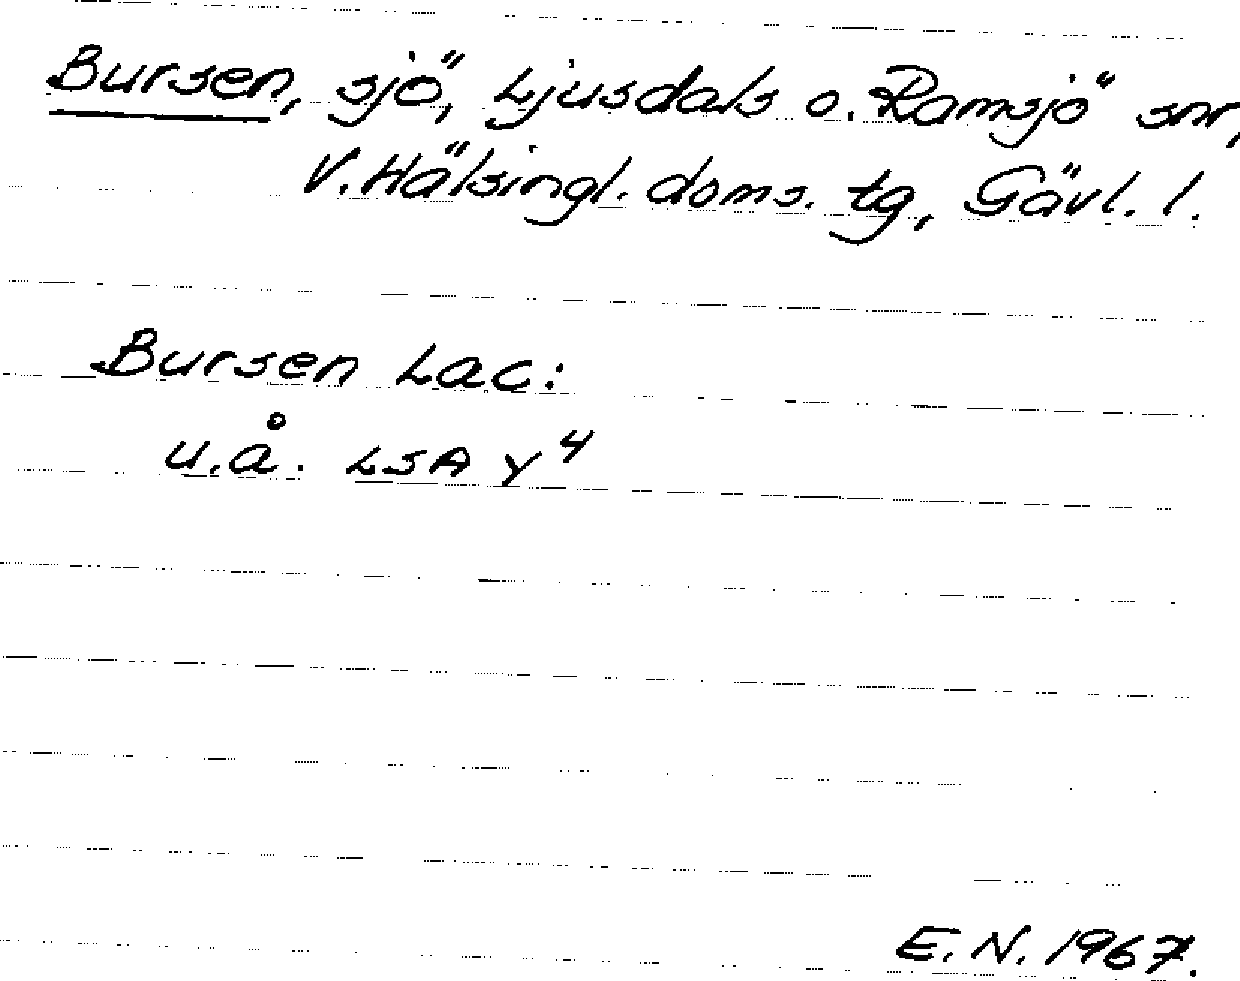 Bursen, sjö, Ljusdals o. Ramsjö snr,
V. Hälsingl. doms. tg, Gävl. l.
Bursen Lac:
u.å. LSA Y4
E.N. 1967.